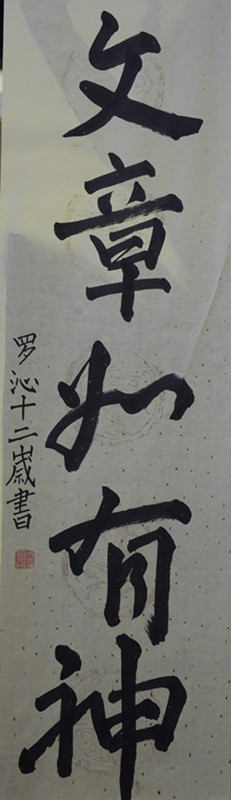 文章如有神
罗沁十二歳書